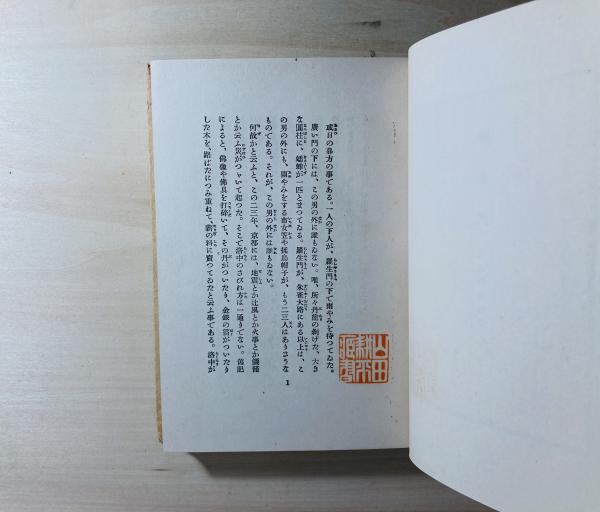 或日の暮方の事である。一人の下人が、羅生門の下で雨やみを待つてゐた。
廣い門の下には、この男の外に誰もゐない。唯、所々丹塗の剥げた、大き
な圓柱に、蟋蟀が一匹とまつてゐる。羅生門が、朱雀大路にある以上は、こ
の男の外にも、雨やみをする市女笠や揉烏帽子が、もう二三人はありさうな
ものである。それが、この男の外には誰もゐない。
何故かと云ふと、この二三年、京都には、地震とか辻風とか火事とか饑饉
とか云ふ災がつゞいて起つた。そこで洛中のさびれ方は一通りでない。舊記
によると、佛像や佛具を打碎いて、その丹がついたり、金銀の箔がついたり
した木を、路ばたにつみ重ねて、薪の料に賣つてゐたと云ふ事である。洛中が
1
山田